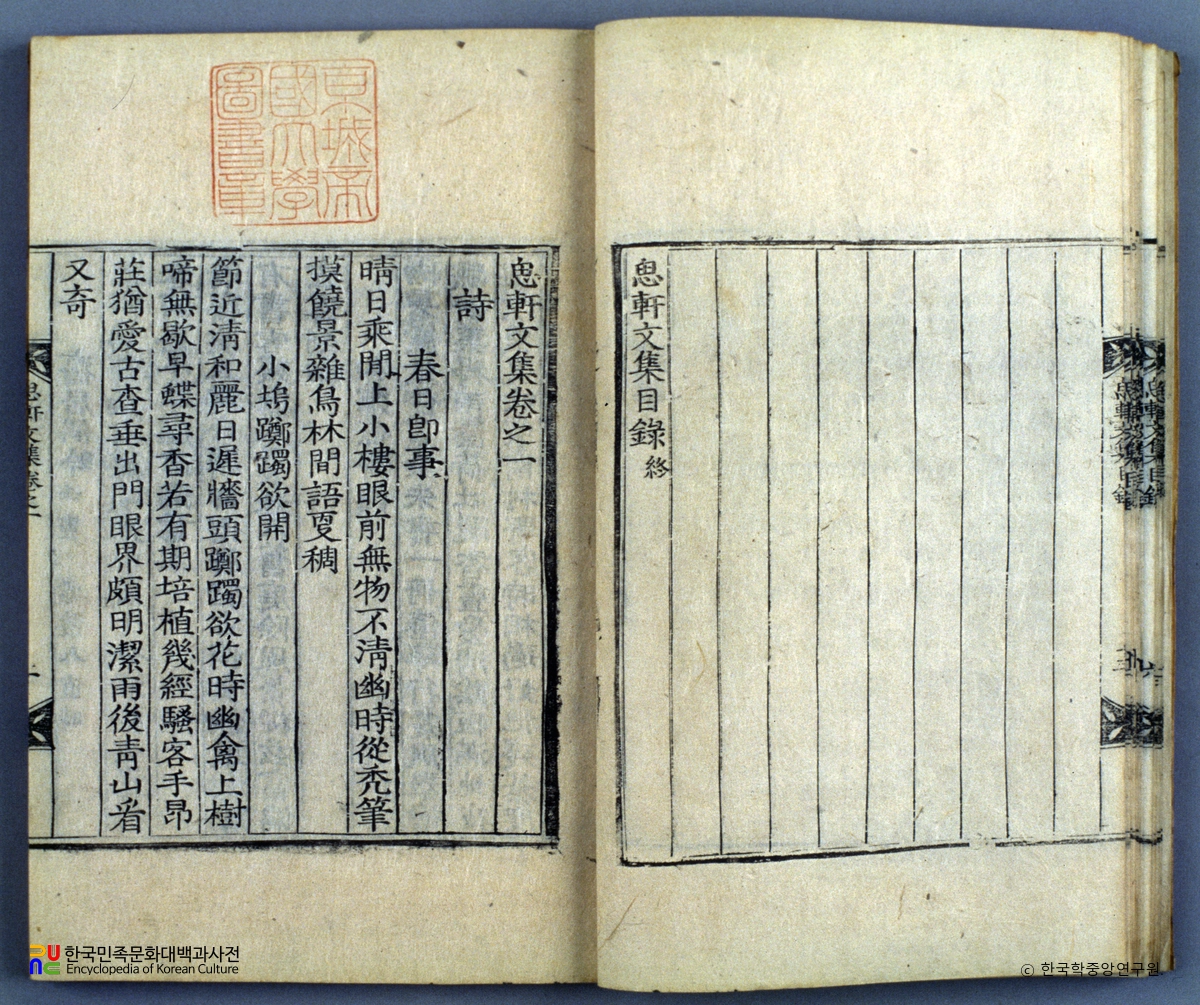 恖軒文集目錄 終
恖軒文集目錄
京城帝
國大學
圖書章
恖軒文集卷之一
詩
春日卽事
晴日乘閒上小樓眼前無物不淸幽時從禿筆
摸饒景雜鳥林間語叓稠
小塢躑躅欲開
節近淸和麗日遲牆頭躑躅欲花時幽禽上樹
啼無歇早蝶尋香若有期培植幾經騷客手昂
莊猶愛古查垂出門眼界頗明潔雨後靑山㸔
又奇
恖軒文集卷之一
한국민족문화대백과사전
Encyclopedia of Korean Culture
© 한국학중앙연구원